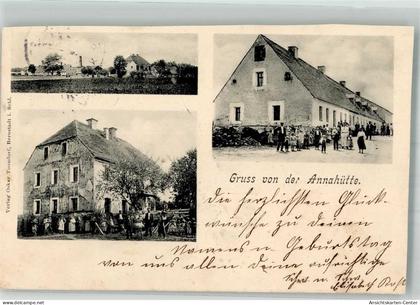 Verlag Oskar Tzensdorf, Bernstadt i. Schl.
Gruss von der Annahütte.
Die herzlichsten Glück-
wünsche zu deinen
Namens u. Geburtstag
von uns allen Deine aufrichtige
Elisabeth
www.ansichtskarten-center.de
Ansichtskarten-Center.de